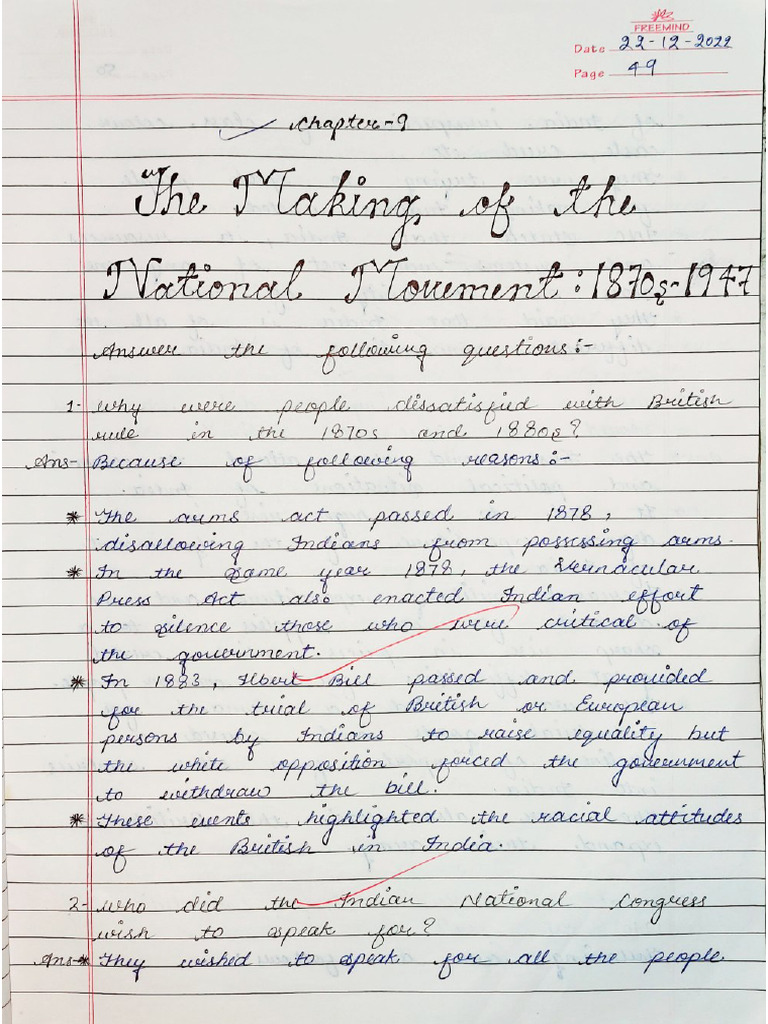 FREEMIND
Date 22-12-2022
Page 49
Chapter-9
The Making of the
National Movement : 1870s-1947
Answer the following questions:-
1- Why were people dissatisfied with British
rule in the 1870s and 1880s?
Ans- Because of following reasons:-
* The arms act passed in 1878,
disallowing Indians from possessing arms.
* In the same year 1878, the Vernacular
Press Act also enacted Indian effort
to silence those who were critical of
the government.
* In 1883, Ilbert Bill passed and provided
for the trial of British or European
persons by Indians to raise equality but
the white opposition forced the government
to withdraw the bill.
* These events highlighted the racial attitudes
of the British in India.
2- Who did the Indian National Congress
wish to speak for?
Ans-* They wished to speak for all the people